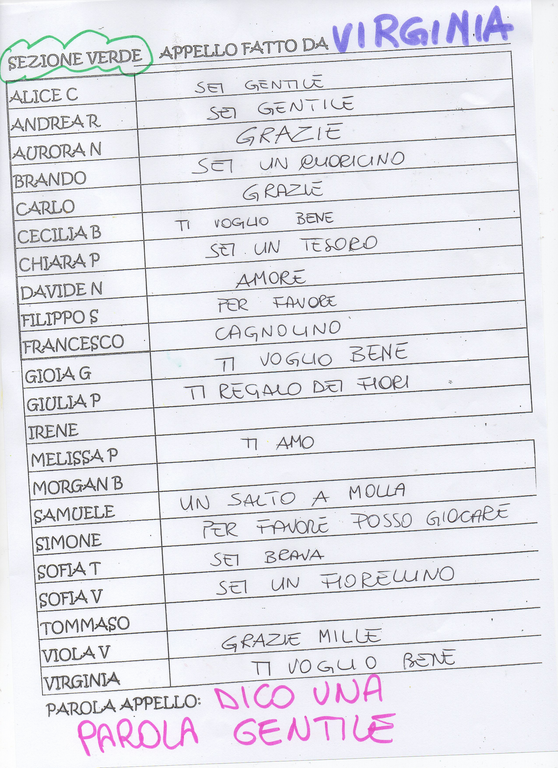 SEZIONE VERDE APPELLO FATTO DA VIRGINIA
ALICE C SEI GENTILE
ANDREA R SEI GENTILE
AURORA N GRAZIE
BRANDO SEI UN CUORICINO
CARLO GRAZIE
CECILIA B TI VOGLIO BENE
CHIARA P SEI UN TESORO
DAVIDE N AMORE
FILIPPO S PER FAVORE
FRANCESCO CAGNOLINO
GIOIA G TI VOGLIO BENE
GIULIA P TI REGALO DEI FIORI
IRENE
MELISSA P TI AMO
MORGAN B
SAMUELE UN SALTO A MOLLA
SIMONE PER FAVORE POSSO GIOCARE
SOFIA T SEI BRAVA
SOFIA V SEI UN FIORELLINO
TOMMASO
VIOLA V GRAZIE MILLE
VIRGINIA TI VOGLIO BENE
PAROLA APPELLO: DICO UNA
PAROLA GENTILE